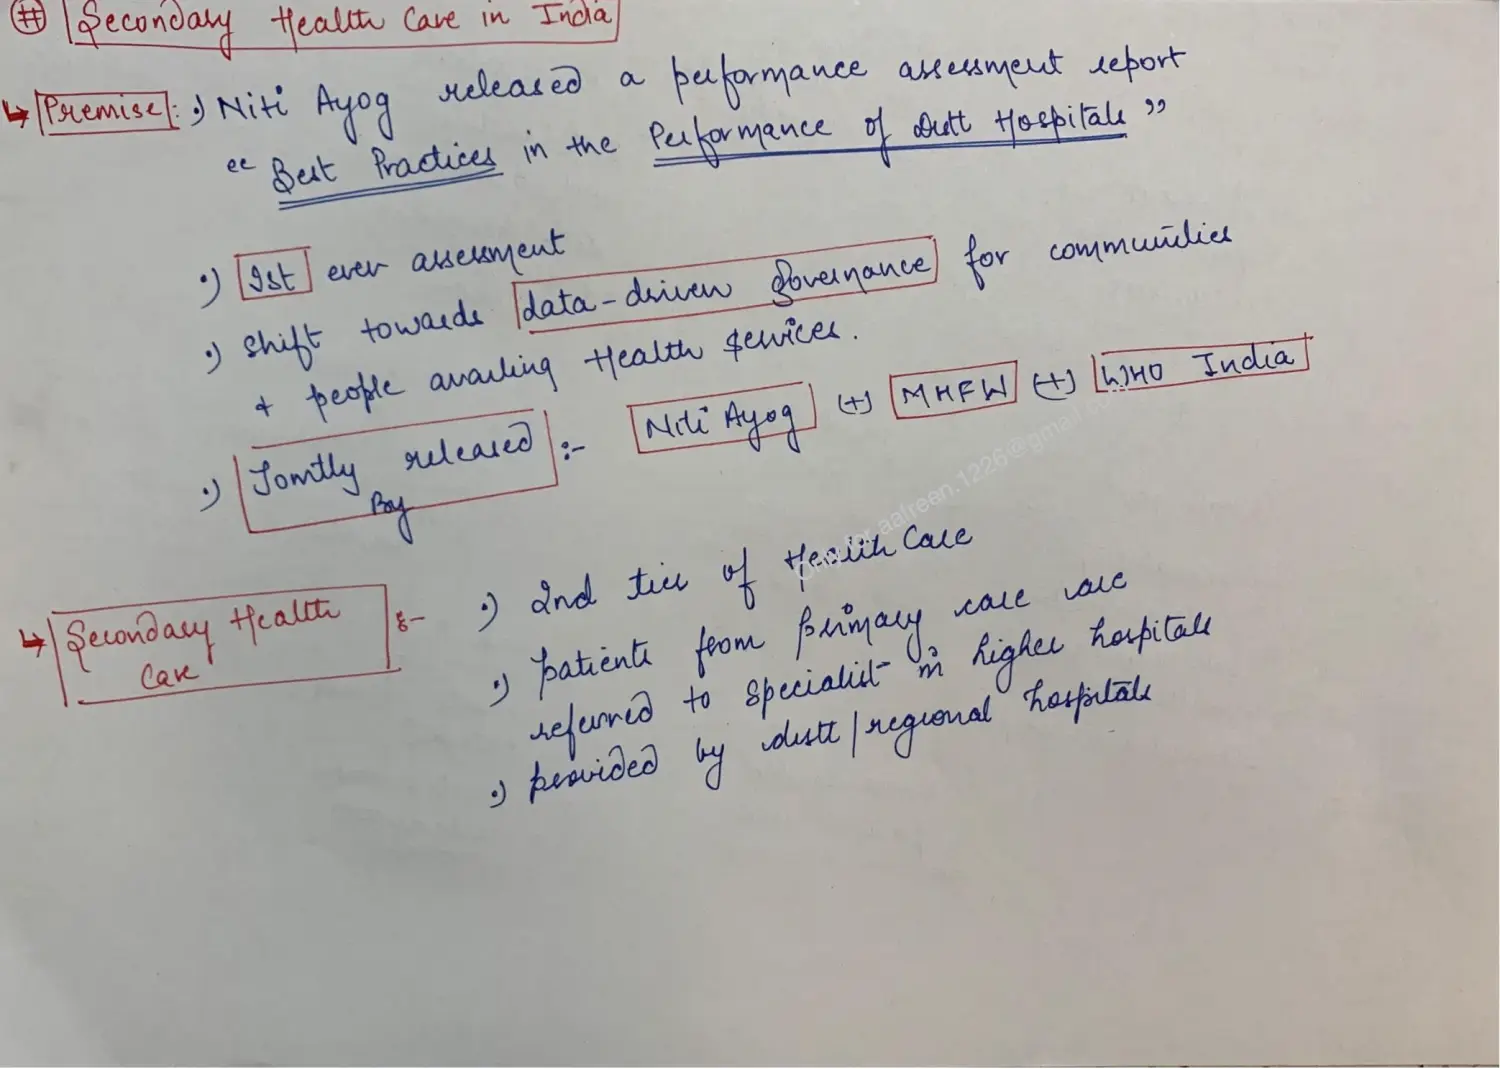 # Secondary Health Care in India
↳ Premise :•) Niti Ayog released a performance assessment report
“ Best Practices in the Performance of Distt Hospitals ”
•) Ist ever assessment
•) shift towards data-driven Governance for communities
+ people availing Health Services.
•) Jointly released By :- Niti Ayog (+) MHFW (+) WHO India
↳ Secondary Health Care :- •) 2nd tier of Health Care
•) patients from primary care are
referred to specialist in higher hospitals
•) provided by distt/regional hospitals
aafreen.1226@gmail